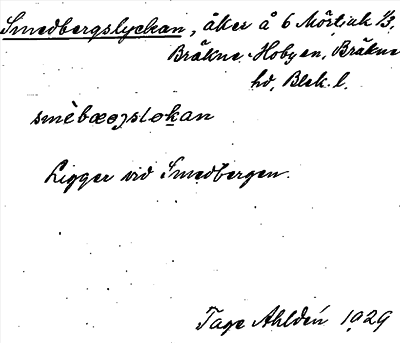 Smedbergslyckan, åker å 6 Mörtjuk 1/3,
Bräkne-Hoby sn, Bräkne
hd, Blek. l.
smèbæɹslɵkan
Ligger vid Smedbergen.
Tage Ahldén 1929